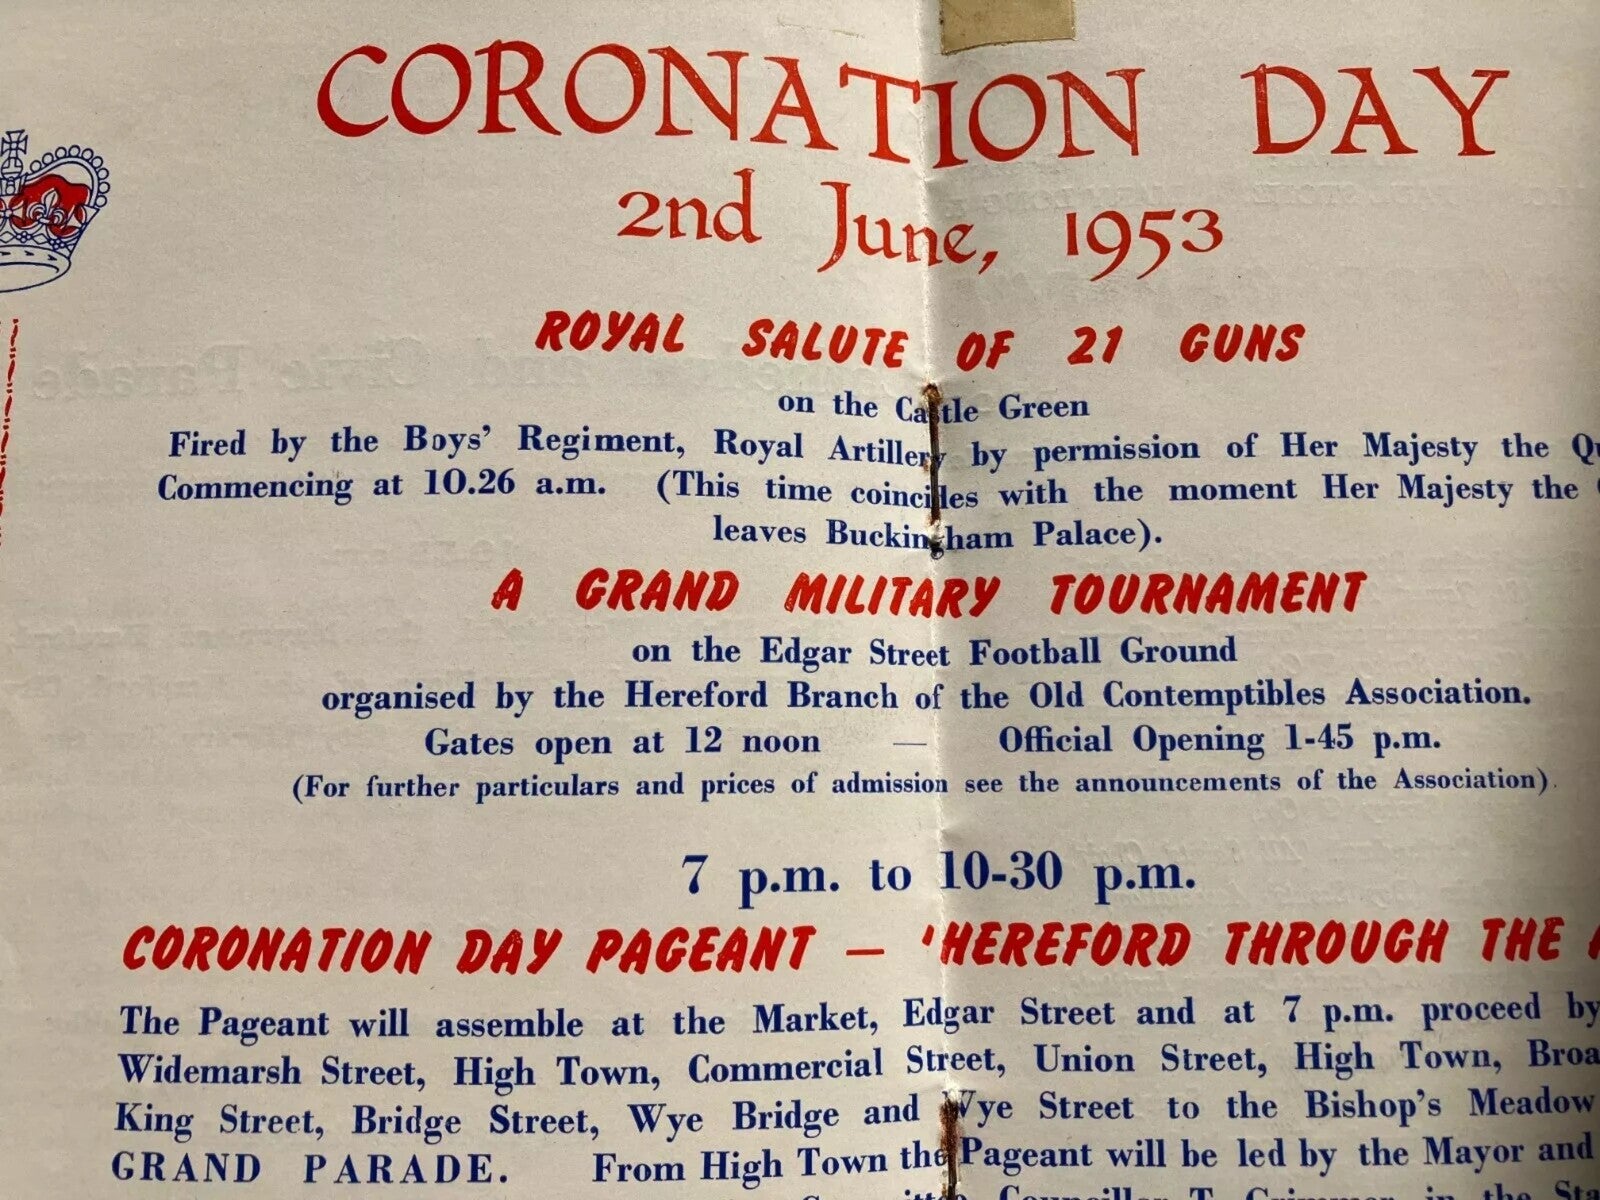 CORONATION DAY
2nd June, 1953
ROYAL SALUTE OF 21 GUNS
on the Castle Green
Fired by the Boys' Regiment, Royal Artillery by permission of Her Majesty the
Commencing at 10.26 a.m. (This time coincides with the moment Her Majesty the
leaves Buckingham Palace).
A GRAND MILITARY TOURNAMENT
on the Edgar Street Football Ground
organised by the Hereford Branch of the Old Contemptibles Association.
Gates open at 12 noon — Official Opening 1-45 p.m.
(For further particulars and prices of admission see the announcements of the Association).
7 p.m. to 10-30 p.m.
CORONATION DAY PAGEANT — 'HEREFORD THROUGH THE
The Pageant will assemble at the Market, Edgar Street and at 7 p.m. proceed by
Widemarsh Street, High Town, Commercial Street, Union Street, High Town,
King Street, Bridge Street, Wye Bridge and Wye Street to the Bishop's Meadow
GRAND PARADE. From High Town the Pageant will be led by the Mayor and
Councillor T. in the